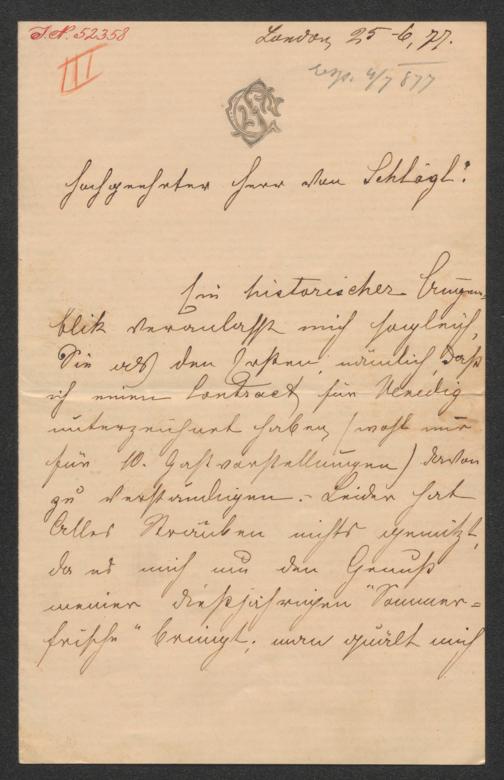 J.N. 52358
London 25-6, 77.
III
resp. 4/7 877
Hochgeehrter Herr von Schlögl!
Ein historischer Augen-
blik veranlasst mich sogleich,
Sie als den Ersten, nämlich, daß
ich einen Contract für Venedig
unterzeichnet habe, (wohl nur
für 10. Gastvorstellungen) davon
zu verständigen. – Leider hat
Alles Sträuben nichts genützt,
da es mich um den Genuß
meiner dießjährigen "Sommer=
frische" bringt; man quält mich